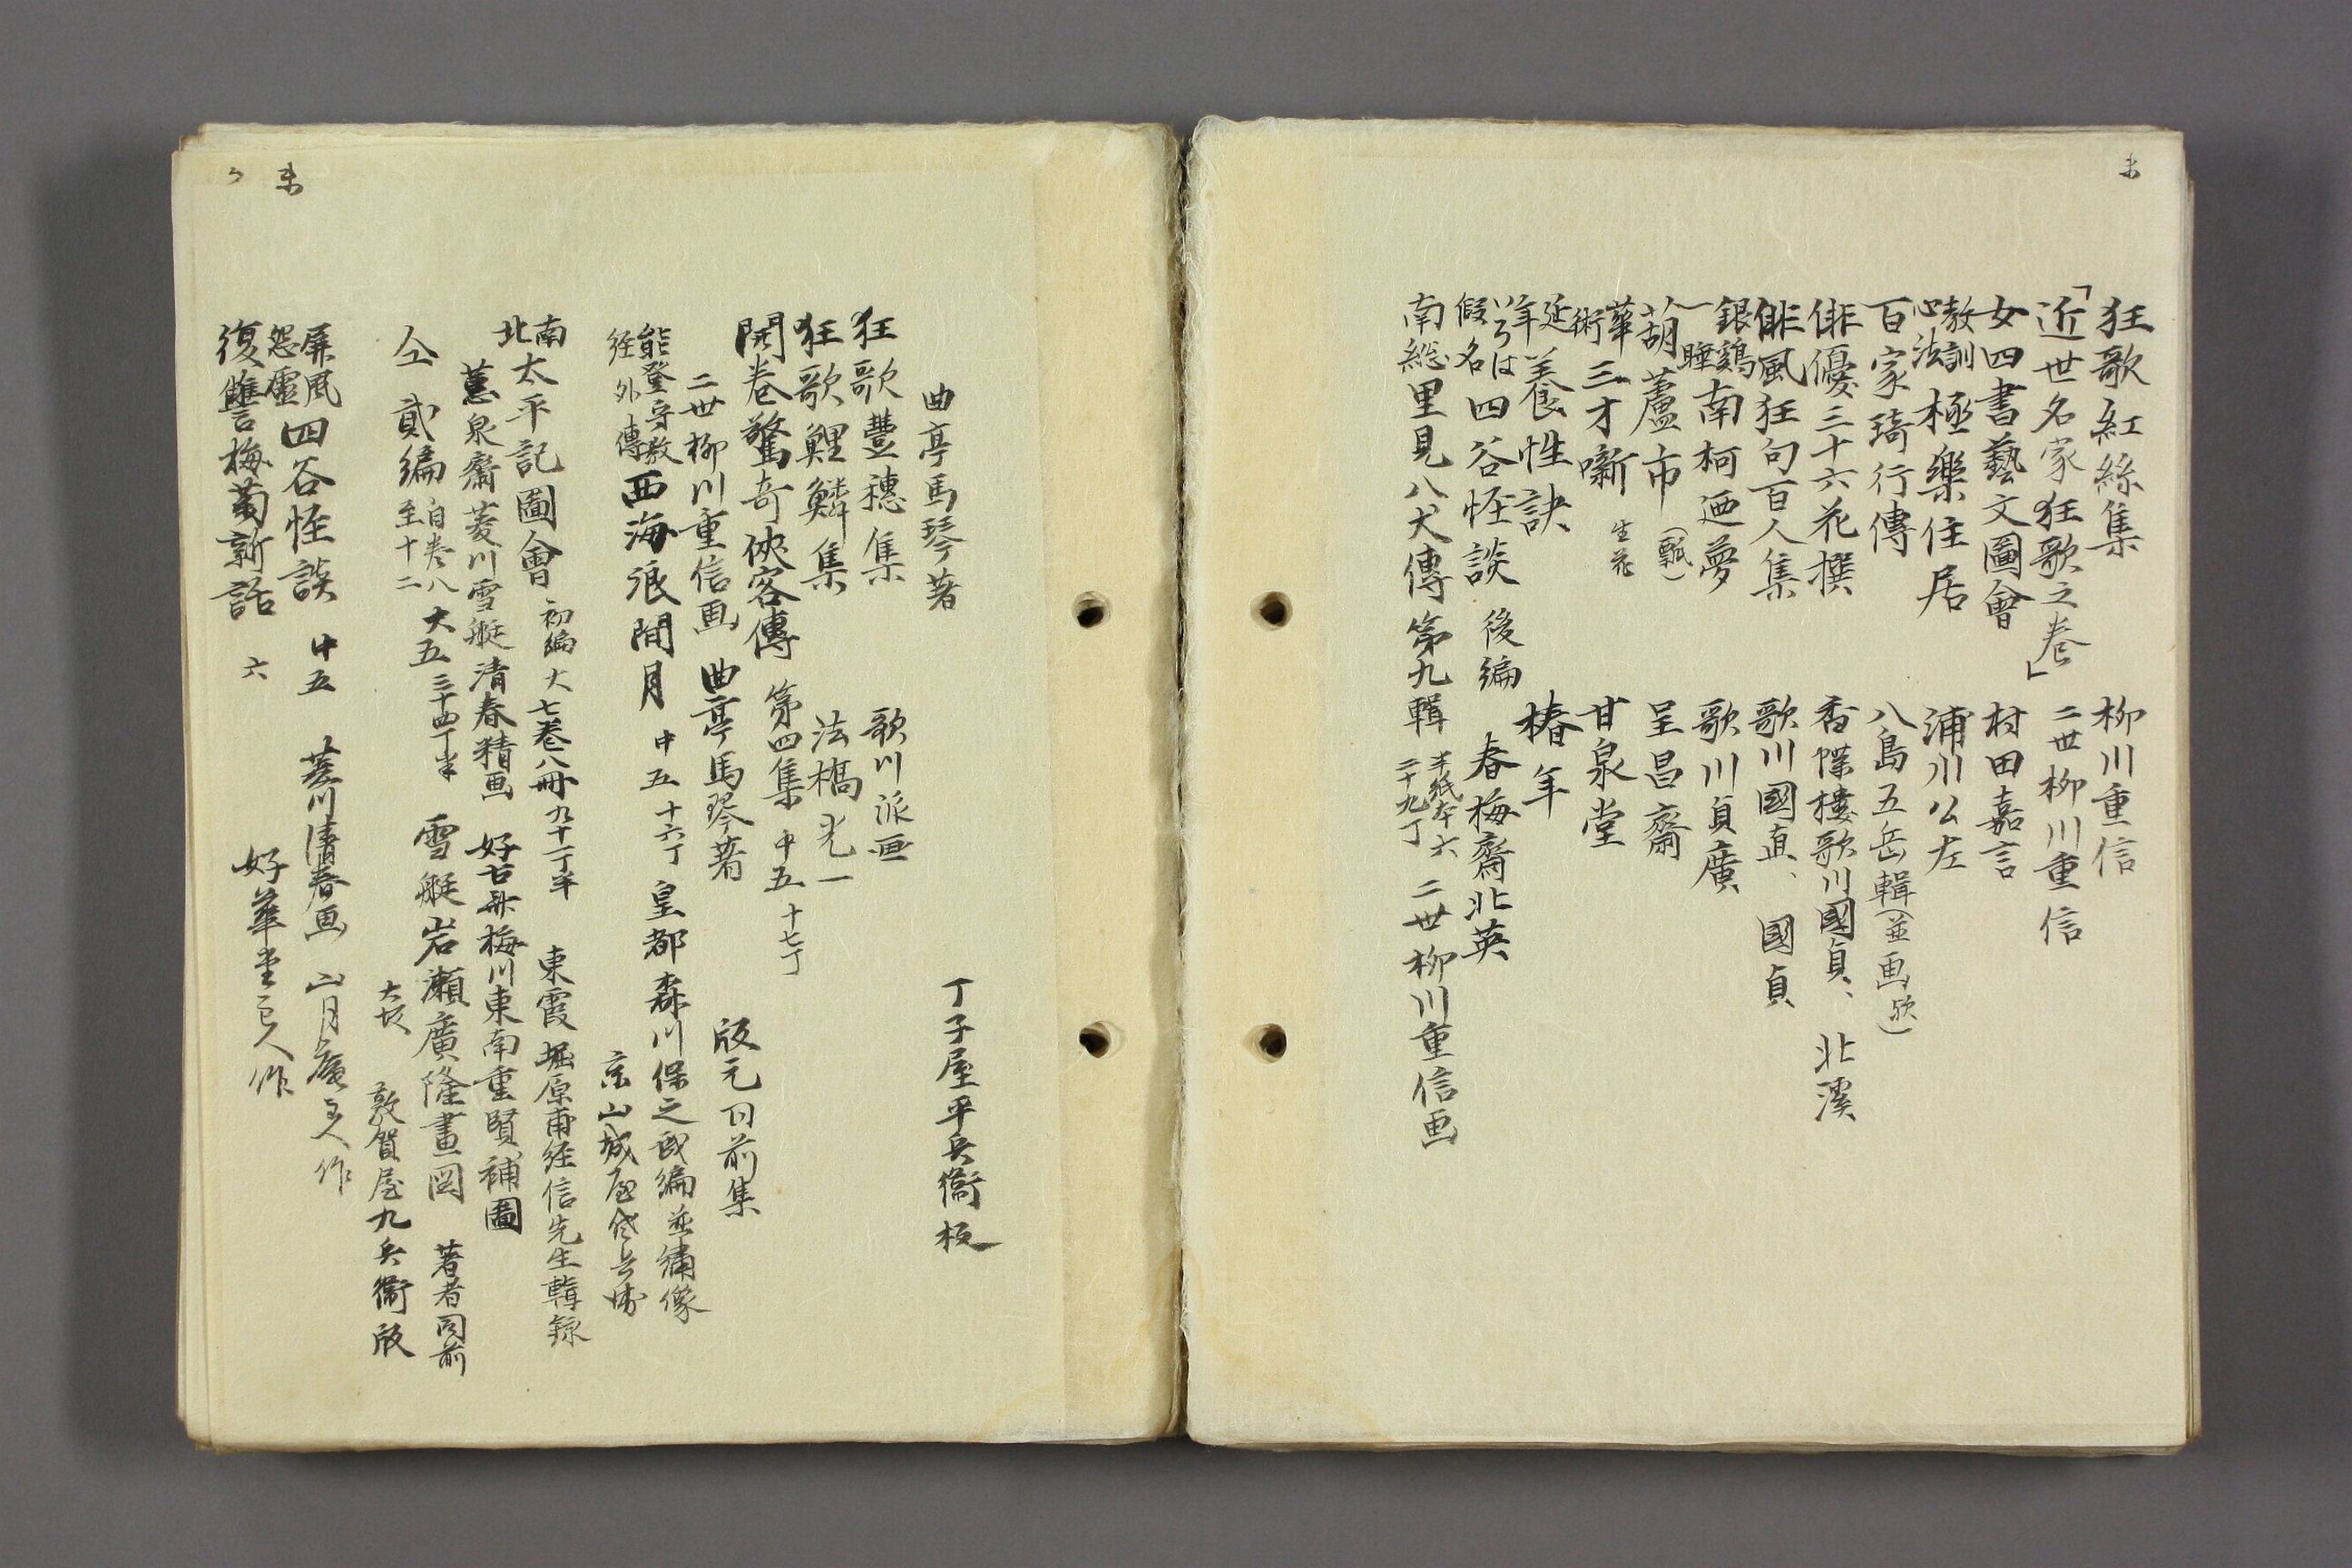 未
狂歌紅絲集 柳川重信
「近世名家狂歌之巻」 二世柳川重信
女四書藝文圖會 村田嘉言
教訓心法 極樂住居 浦川公左
百家琦行傳 八島五岳輯(並画欤)
俳優三十六花撰 香蝶樓歌川國貞、北溪
俳風狂句百人集 歌川國直、國貞
銀鷄一睡 南柯廼夢 歌川貞廣
葫蘆市(瓢) 呈昌齋
華術 三才噺 生花 甘泉堂
延年 養性訣 椿年
いろは假名 四谷怪談 後編 春梅齋北英
南総里見八犬傳 第九輯 半紙本六 二十九丁 二世柳川重信画
曲亭馬琴著 丁子屋平兵衞板
狂歌豐穗集 歌川派画
狂歌鯉鱗集 法橋光一
開巻驚奇俠客傳 第四集 中五 十七丁
二世柳川重信画 曲亭馬琴著 版元同前集
能登守教経外傳 西海浪間月 中五 十六丁 皇都森川保之戯編並繍像
京山城屋佐兵衛
南北太平記圖會 初編 大七巻八冊 九十一丁半 東霞堀原甫経信先生輯録
蕙泉齋菱川雪艇清春精画 好古舟梅川東南重賢補圖
仝 貳編 自巻八至十二 大五 三十四丁半 雪艇岩瀬廣隆畫図 著者同前
大坂 敦賀屋九兵衞版
屏風怨靈 四谷怪談 中五 菱川清春画 山月庵主人作
復讐梅菊新話 六 好華堂主人作
未